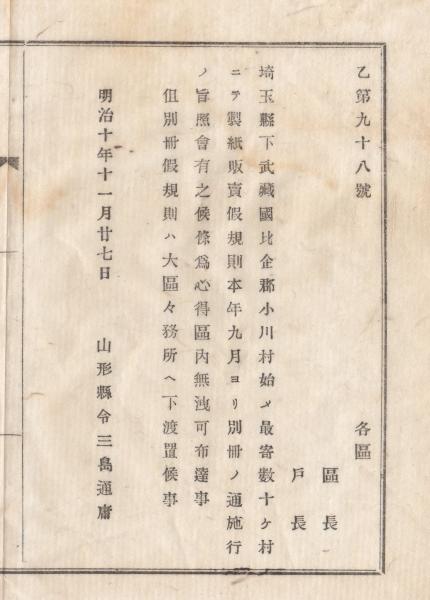 乙第九十八號
各區
區長
戶長
埼玉縣下武藏國比企郡小川村始メ最寄數十ケ村
ニテ製紙販賣假規則本年九月ヨリ別冊ノ通施行
ノ旨照會有之候條爲心得區內無洩可布達事
但別冊假規則ハ大區々務所ヘ下渡置候事
明治十年十一月廿七日
山形縣令三島通庸